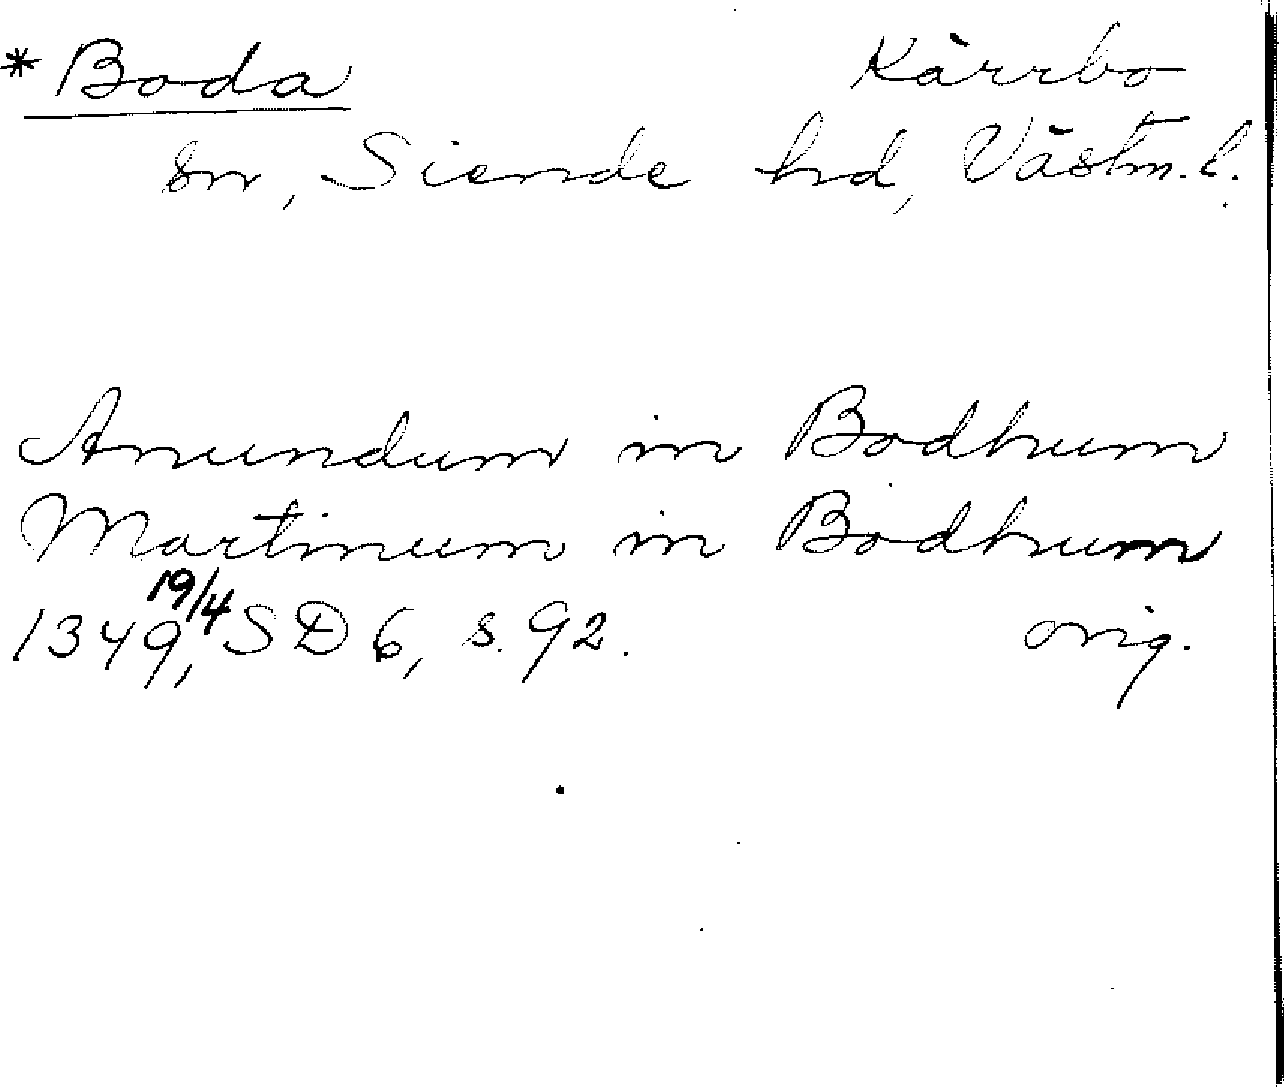 * Boda Kärrbo
sn, Siende hd, Västm. l.
Anundum in Bodhum
Martinum in Bodhum
1349 19/4, SD 6, s. 92. orig.